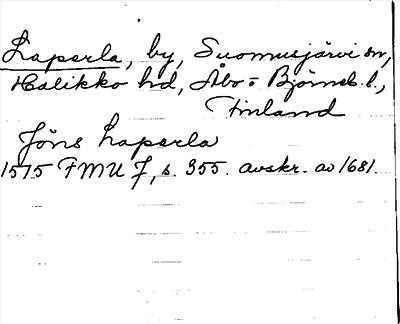 Laperla, by, Suomusjärvi sn,
Halikko hd, Åbo- o Björneb. l.,
Finland
Jöns Laperla
1515 FMU 7, s. 355. avskr. av 1681.